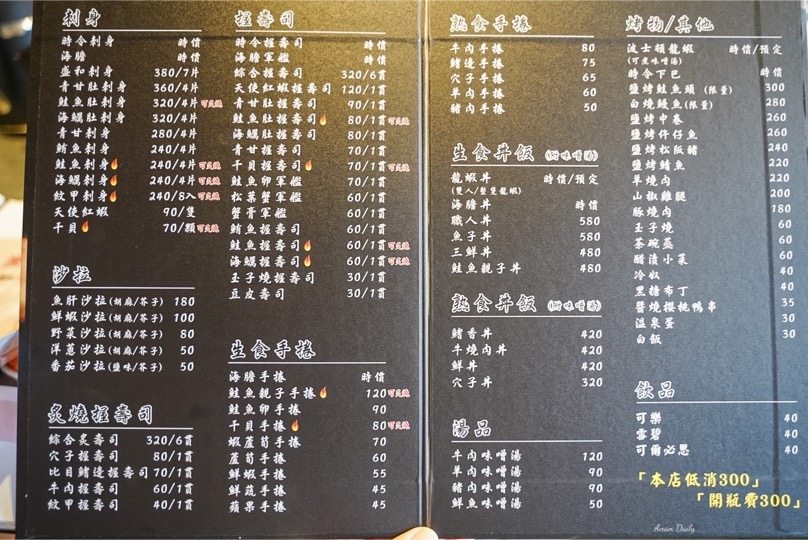 刺身
時令刺身 時價
海膽 時價
盛和刺身 380/7片
青甘肚刺身 360/4片
鮭魚肚刺身 320/4片 可炙燒
海鱺肚刺身 320/4片
青甘刺身 280/4片
鮪魚刺身 240/4片
鮭魚刺身 240/4片 可炙燒
海鱺刺身 240/4片 可炙燒
紋甲刺身 240/8入 可炙燒
天使紅蝦 90/隻
干貝 70/顆 可炙燒
沙拉
魚肝沙拉(胡麻/芥子) 180
鮮蝦沙拉(胡麻/芥子) 100
野菜沙拉(胡麻/芥子) 80
洋蔥沙拉(胡麻/芥子) 50
番茄沙拉(鹽味/芥子) 50
炙燒握壽司
綜合炙壽司 320/6貫
穴子握壽司 80/1貫
比目鰭邊握壽司 70/1貫
牛肉握壽司 60/1貫
紋甲握壽司 40/1貫
握壽司
時令握壽司 時價
海膽軍艦 時價
綜合握壽司 320/6貫
天使紅蝦握壽司 120/1貫
青甘肚握壽司 90/1貫
鮭魚肚握壽司 80/1貫 可炙燒
海鱺肚握壽司 80/1貫
青甘握壽司 70/1貫
干貝握壽司 70/1貫 可炙燒
鮭魚卵軍艦 70/1貫
松葉蟹軍艦 60/1貫
蟹膏軍艦 60/1貫
鮪魚握壽司 60/1貫
鮭魚握壽司 60/1貫 可炙燒
海鱺握壽司 60/1貫 可炙燒
玉子燒握壽司 30/1貫
豆皮壽司 30/1貫
生食手捲
海膽手捲 時價
鮭魚親子手捲 120 可炙燒
鮭魚卵手捲 90
干貝手捲 80 可炙燒
蝦蘆筍手捲 70
蘆筍手捲 60
鮮蝦手捲 55
鮮蔬手捲 45
蘋果手捲 45
熟食手捲
牛肉手捲 80
鰭邊手捲 75
穴子手捲 65
羊肉手捲 60
豬肉手捲 50
生食丼飯 (附味噌湯)
龍蝦丼 時價/預定
(雙人/整隻龍蝦)
海膽丼 時價
職人丼 580
魚子丼 580
三鮮丼 480
鮭魚親子丼 480
熟食丼飯 (附味噌湯)
鰭香丼 420
牛燒肉丼 420
鮮丼 420
穴子丼 320
湯品
牛肉味噌湯 120
羊肉味噌湯 90
豬肉味噌湯 90
鮮魚味噌湯 50
烤物/其他
波士頓龍蝦 時價/預定
(可煮味噌湯)
時令下巴 時價
鹽烤鮭魚頭 (限量) 300
白燒鰻魚(限量) 280
鹽烤中卷 260
鹽烤仟仔魚 260
鹽烤松阪豬 240
鹽烤鯖魚 220
羊燒肉 220
山椒雞腿 200
豚燒肉 180
玉子燒 60
茶碗蒸 60
醋漬小菜 60
冷奴 40
黑糖布丁 40
醬燒櫻桃鴨串 35
溫泉蛋 30
白飯 30
飲品
可樂 40
雪碧 40
可爾必思 40
「本店低消300」
「開瓶費300」
Anan Daily